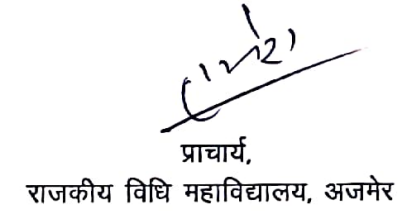 प्राचार्य,
राजकीय विधि महाविद्यालय, अजमेर